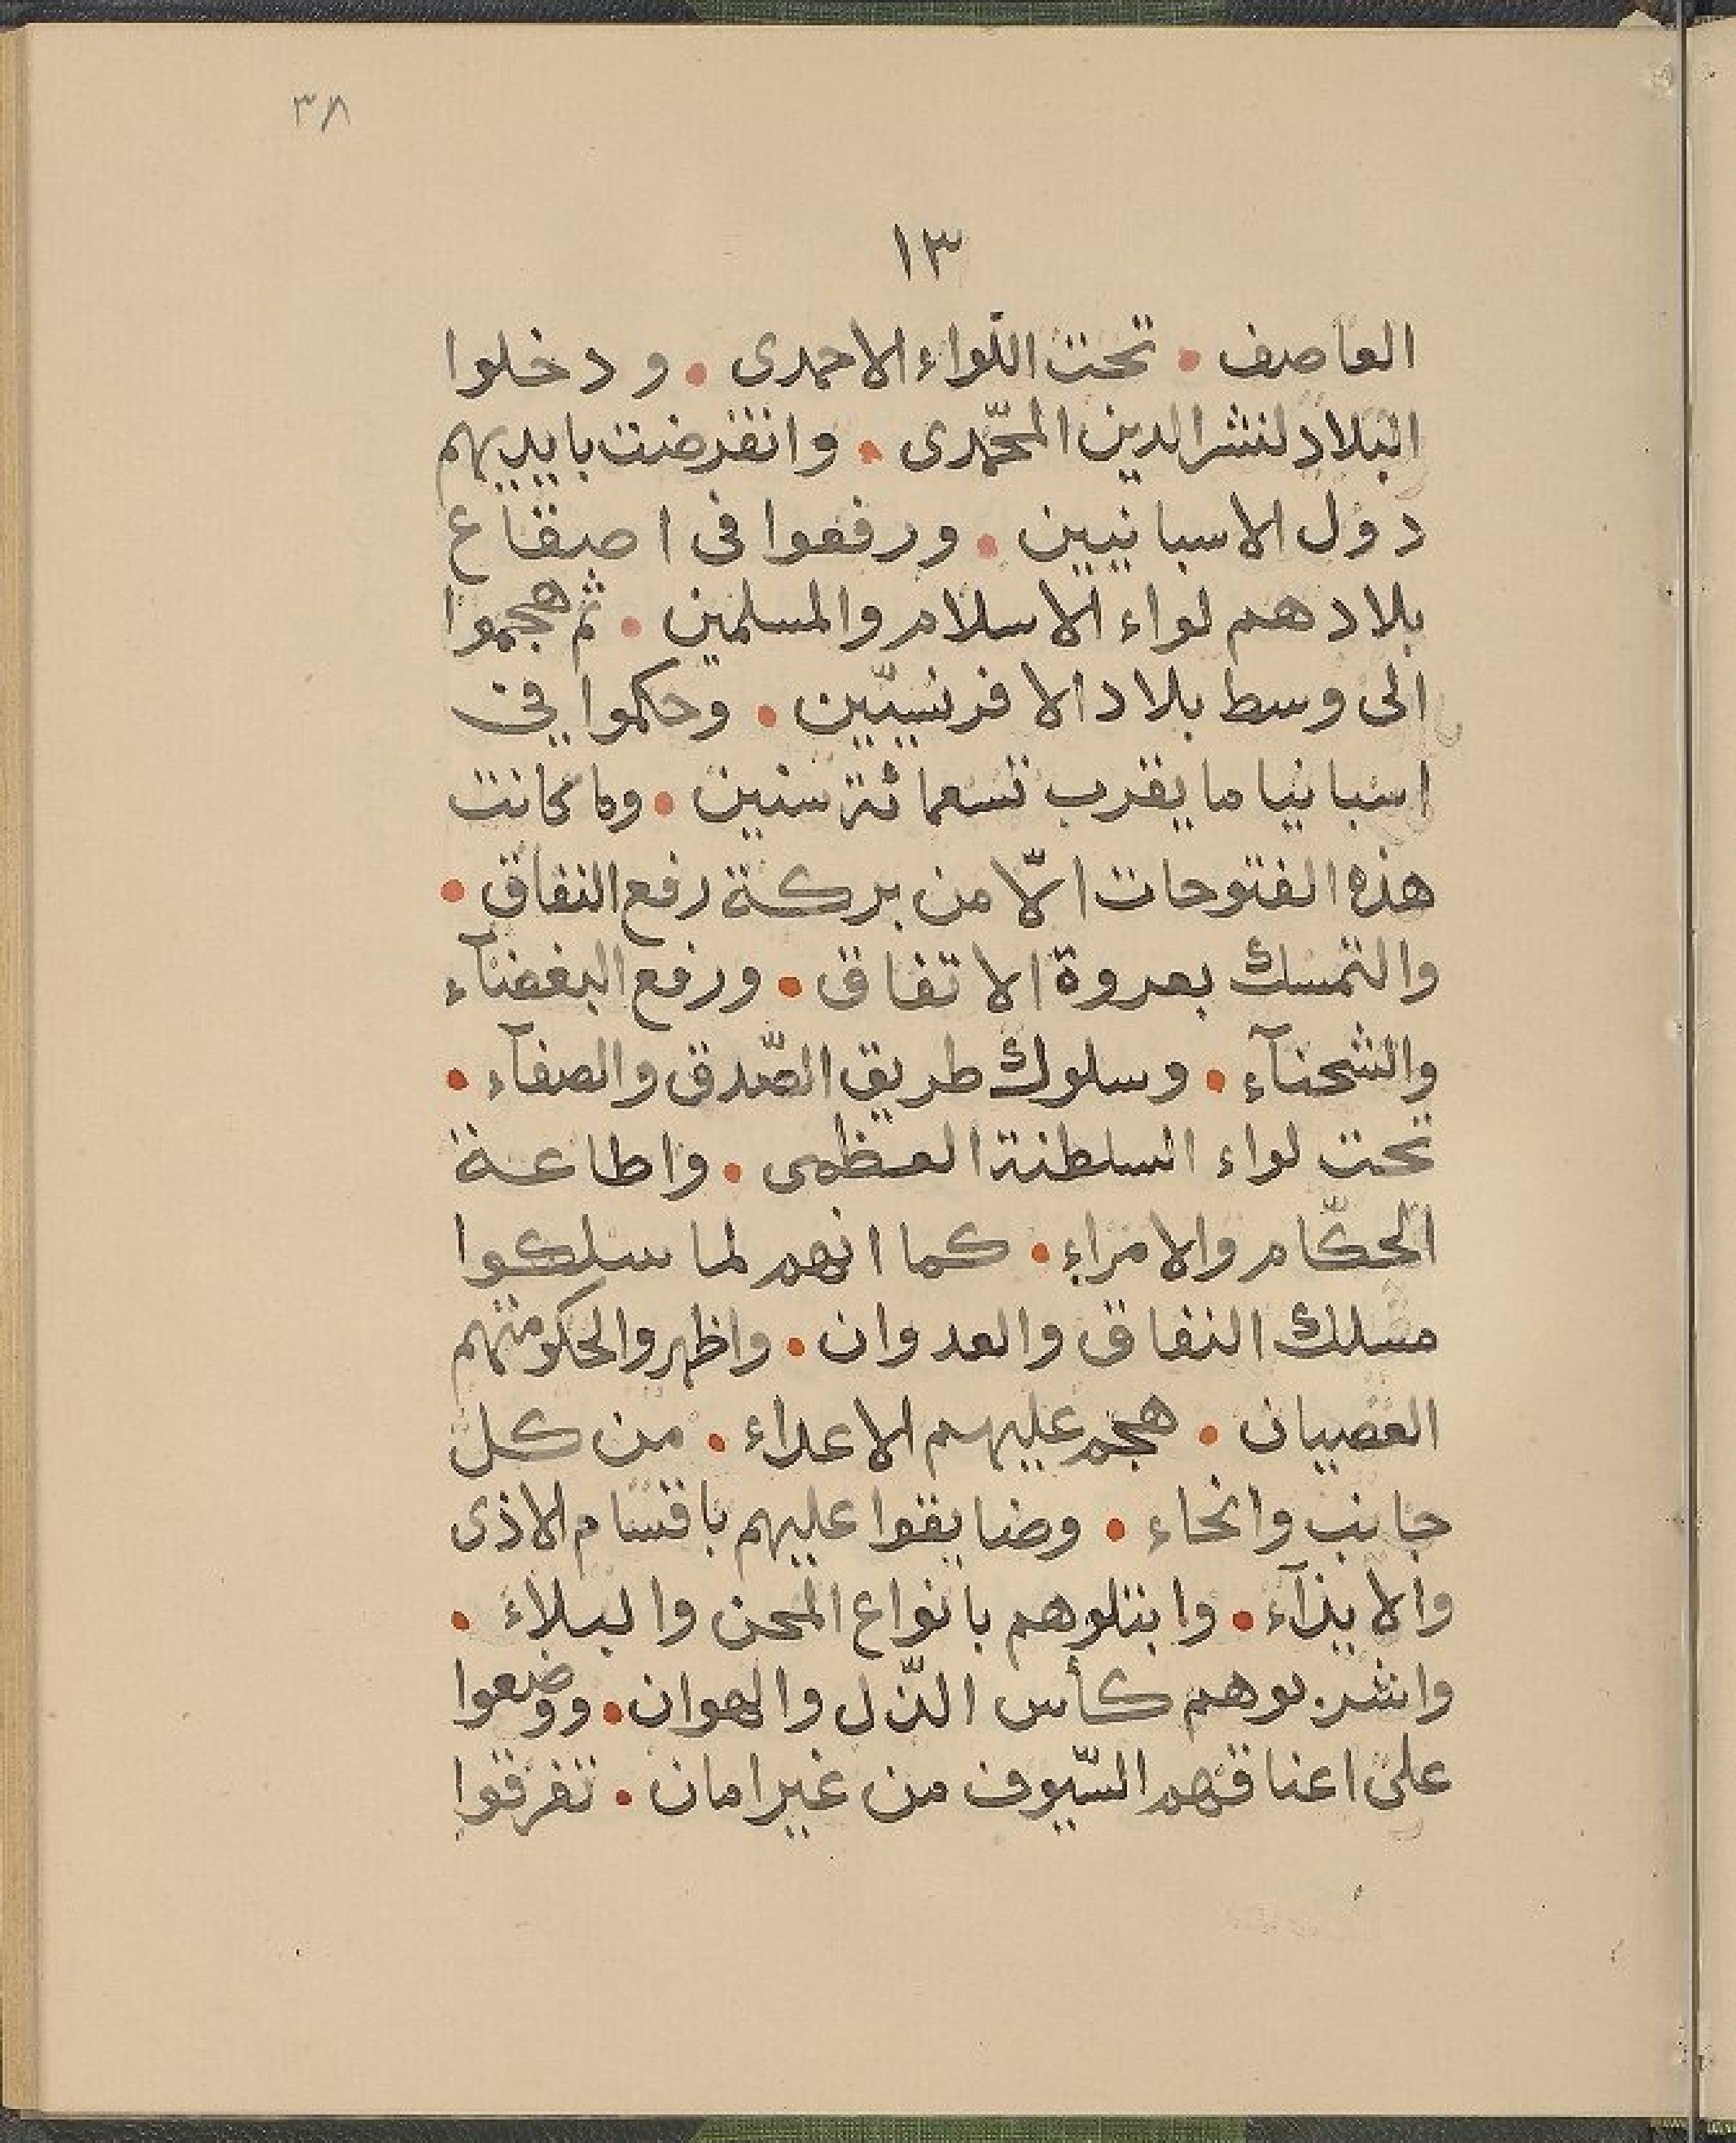 ٣٨
١٣
العاصف • تحت اللّواء الاحمدى • ودخلوا
البلاد لنشر الدين المحمّدى • وانقرضت بايديهم
دول الاسبانيين • ورفعوا فى اصقاع
بلادهم لواء الاسلام والمسلمين • ثم هجموا
الى وسط بلاد الافرنسيّين • وحكموا فى
اسبانيا ما يقرب تسعمائة سنين • وما كانت
هذه الفتوحات الّا من بركة رفع النفاق •
والتمسك بعروة الاتفاق • ورفع البغضآء
والشحنآء • وسلوك طريق الصّدق والصفآء •
تحت لواء السلطنة العظمى • واطاعة
الحكّام والامراء • كما انهم لما سلكوا
مسلك النفاق والعدوان • واظهروا لحكومتهم
العصيان • هجم عليهم الاعداء • من كل
جانب وانحاء • وضايقوا عليهم باقسام الاذى
والايذآء • وابتلوهم بانواع المحن والبلاء •
واشربوهم كأس الذّل والهوان • ووضعوا
على اعناقهم السّيوف من غير امان • تفرقوا